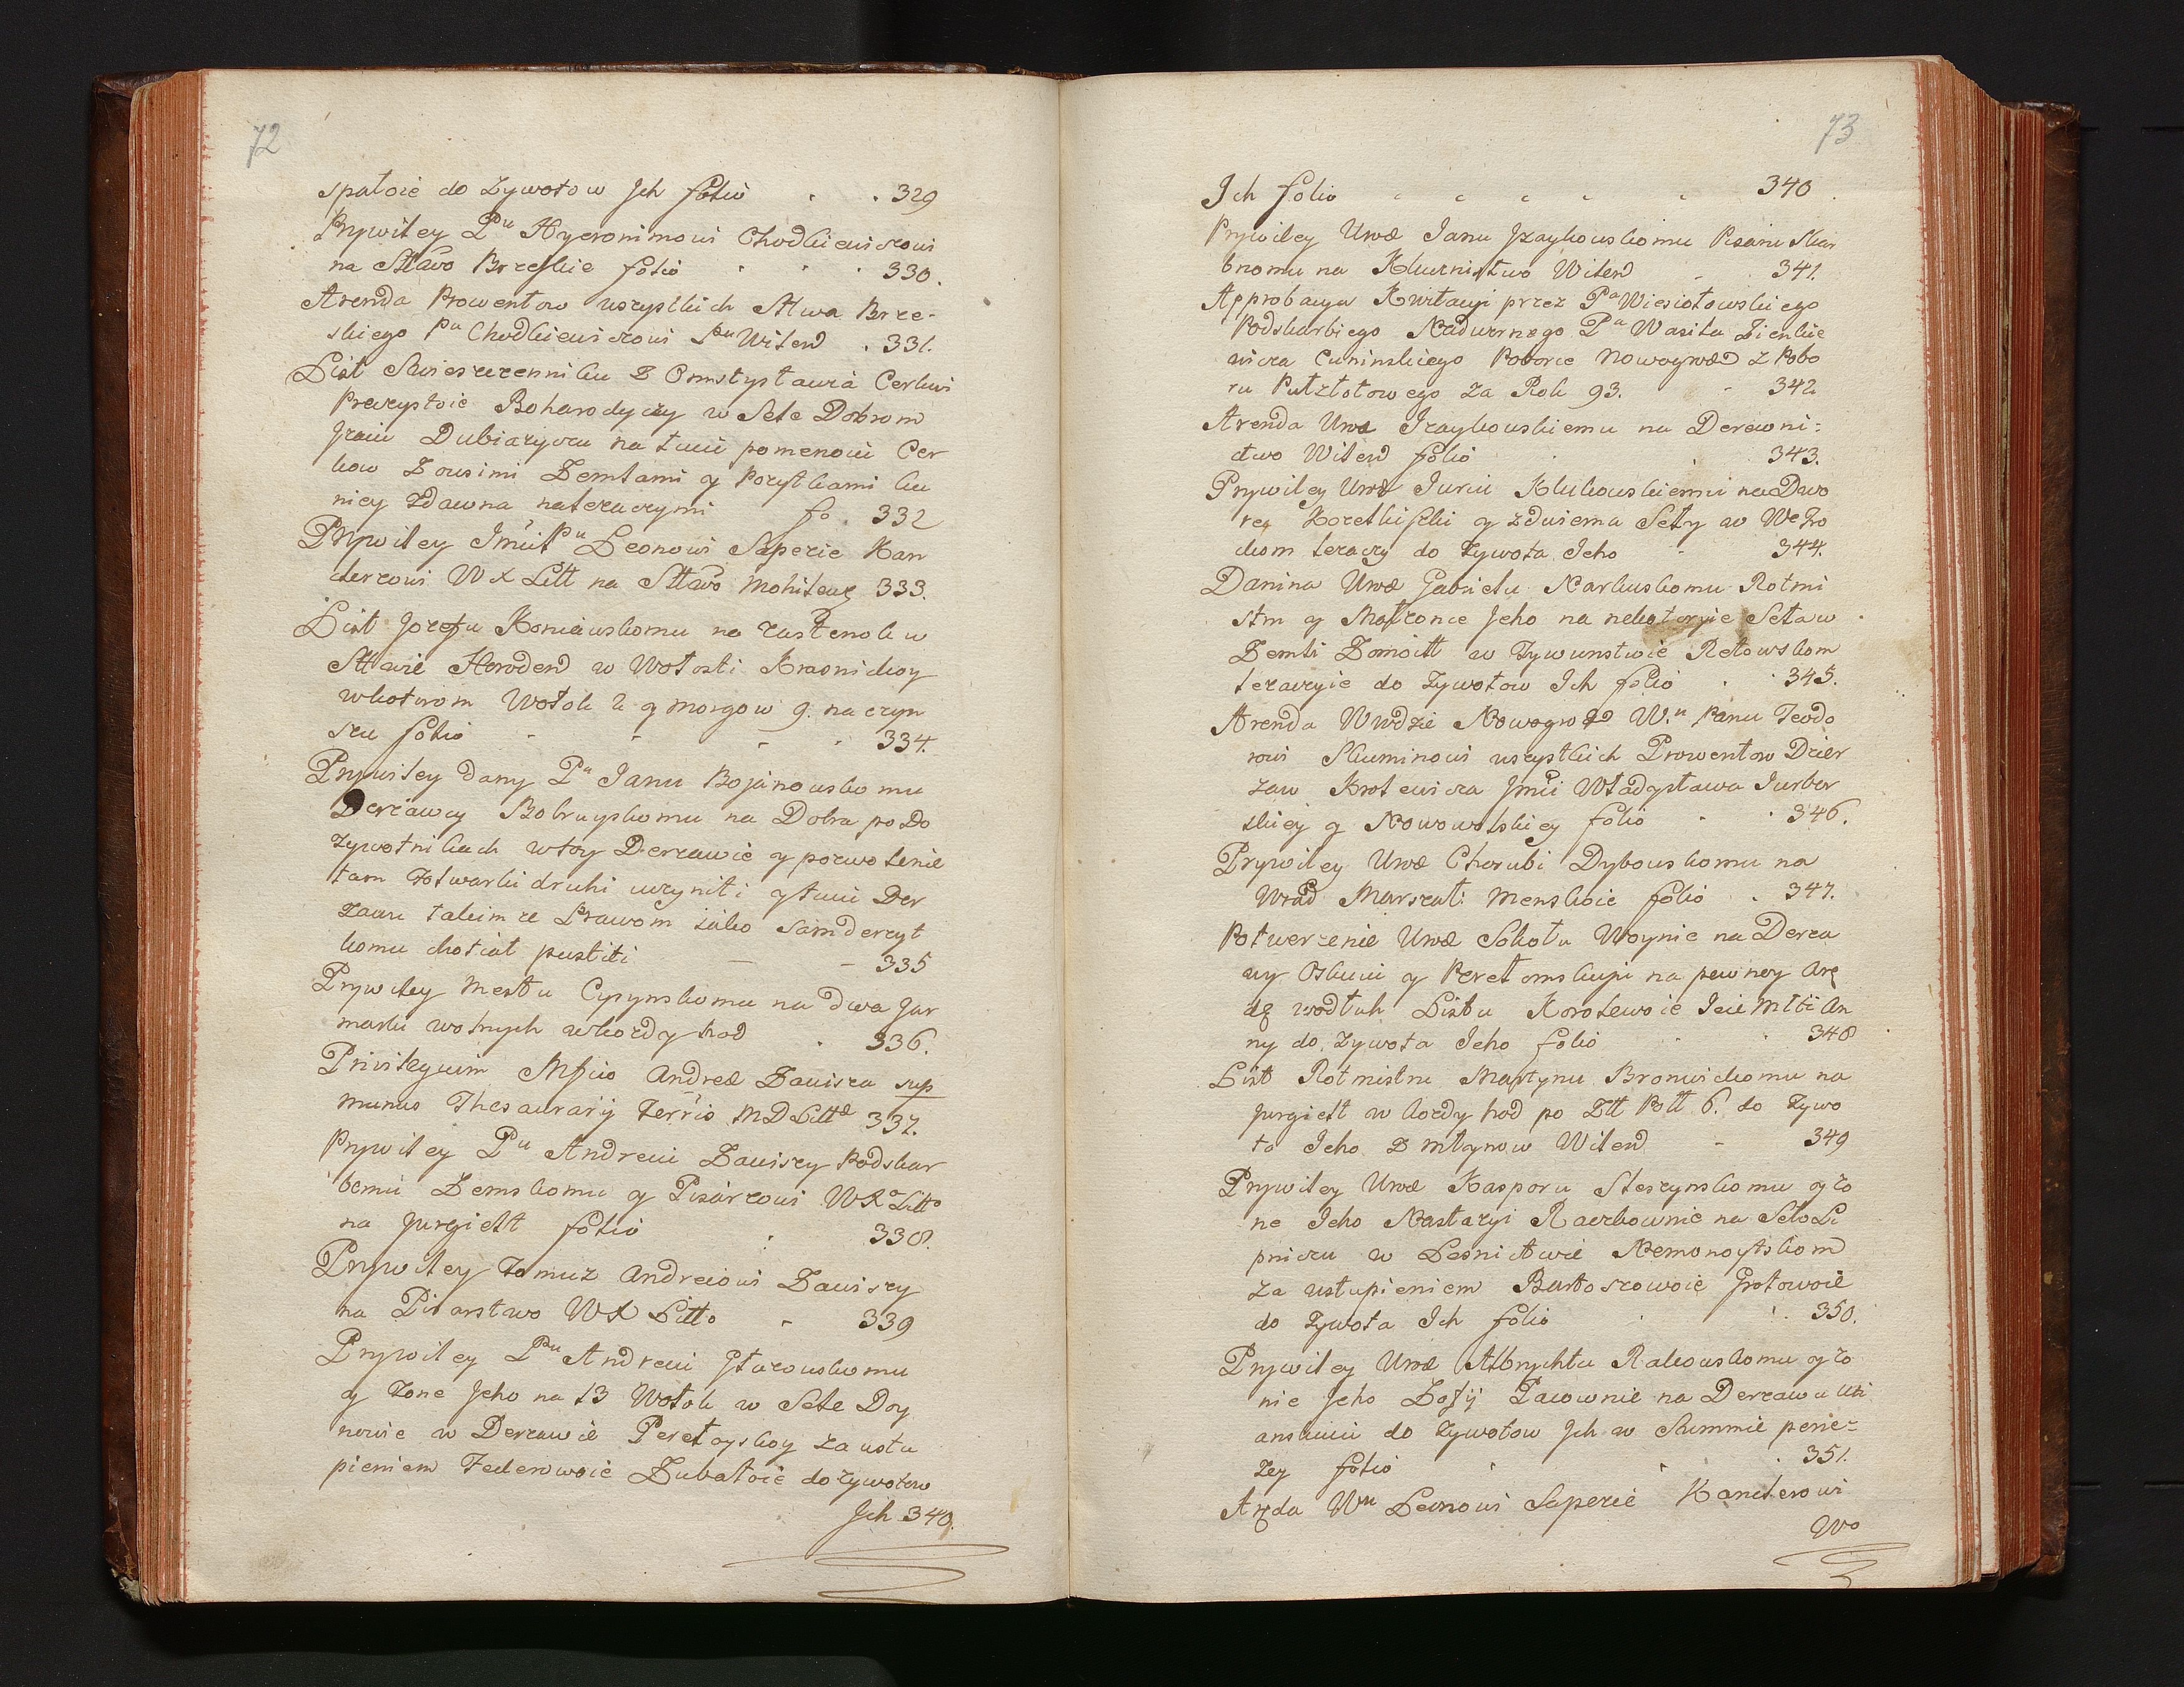 72
spatoie do Zywotow Jch folio . . 329
Prywiley Pu Hyeronimowi Chodkiewiczowi
na Sttwo Brzeskie folio . . . 330.
Arenda Prowentow wszystkich Sttwa Brze-
skiego Pu Chodkiewiczowi Pu Wilend . 331.
List Swieszczenniku Z Omstystawia Cerkwi
Preczystoie Boharodyczy w Sele Dobrom
Dubiazycu na tuiu pomenoiu Cer
kow Zousimi Zemlami y Pozytkami ku
niey zdawna nalezaczymi fo. 332
Prywiley Jmśit Pu Leonowi Sapezie Kan
clerzowi WX Litt na Sttwo Mohilewę 333.
List Jozefu Koniawskomu na zastenok w
Sttwie Horodend w Wołosti Krasnickoy
wkotorom Wołok 2 y morgow 9. na czyn
szu folio - - - . 334.
Prywiley dany Pu Janu Bojanowskomu
Derżawcy Bobruyskomu na Dobra po Do
Zywotnikach wtoy Derżawie y pozwolenie
tam Folwarki druhi uczyniti y tuiu Der
Zawu takim ze Prawom iako sam derzyt
komu chotiat pustiti — — 335
Prywiley Mestu Cypynskomu na dwa Jar
marki wolnych wkozdy hod . 336.
Privilegium Mfico Andreæ Zawisza sup
mumus Thesaurarij Terris MDLittæ 337.
Prywiley Pu Andreiu Zawiszy Podskar
bemu Zemskomu y Pisarzowi WXo Litto
na Jurgielt folio . 338.
Prywiley Tomuz Andreiowi Zawiszy
na Pisarstwo WX Litto - 339
Prywiley Pu Andreiu Jtarowskomu
y Zone Jeho na 13 Wołok w Sele Doy
nowie w Derzawie Perełayskoy za ustu
pieniem Federowoie Zubatoie do Zywotow
Jch 340.
73
Ich folio - - - - - 340.
Prywiley Urod Janu Jzaykowskomu Pisaru Skar
bnomu na Klucznictwo Wilend - 341.
Approbacya Kwitacyi przez Pa Wiesiołowskiego
Podskarbiego Nadwornego Pa Wasila Zienkie
wicza Cuninskiego Poborce Nowogrod z Pobo
ru Pułzłotowego za Rok 93. - 342.
Arenda Urod Jzaykowskiemu na Derewni:
ctwo Wilend folio . . 343.
Prywiley Urod Juriu Klukowskiemu na Dwo
rec Korelkiszki y zdwiema Sely w We Tro
ckom lezaczy do Zywota Jeho - 344.
Danina Urod Gabrielu Narkuskomu Rotmi
stru y Małzonce Jeho na nekotoryie Seła w
Zemli Zomoitt w Tywunstwie Retowskom
lezaczyie do Zywotow Ich folio . . 345.
Arenda Wwdzie Nowogrod W.u Panu Teodo
rowi Skuminowi wszystkich Prowentow Dzier
zaw Krolewicza Jmśi Władysława Jurbor
skiey y Nowowolskiey folio . . 346.
Prywiley Urod Chorubi Dybowskomu na
Urad Marszał: Menskoie folio . 347.
Potwerzenie Urod Sokołu Woynie na Derza
wy Oskuiu y Perełomskuju na pewney Arę
dę wodłuh Listu Korolewoie Jeie Młti An
ny do Zywota Jeho folio . . 348
List Rotmistru Martynu Bronickomu na
Jurgielt w kozdy hod po Złł Poll 6. do Zywo
ta Jeho z młynow Wilend - 349
Prywiley Urod Kasporu Steszynskomu y żo
ne Jeho Nastazyi Raczkownie na Sełolo Li
pniczu w Lesnictwie Nemonoytskom
za ustupieniem Bartoszowoie Grotowoie
do Zywota Ich folio . . 350.
Prywiley Urod Albrychtu Rakowskomu y żo
nie Jeho Zofij Pacownie na Derzawu Uszi
anskuiu do Zywotow Jch w Summie penie-
zey folio . . . 351.
Aręda Wu Leonowi Sapezie Kanclerowi
Wo